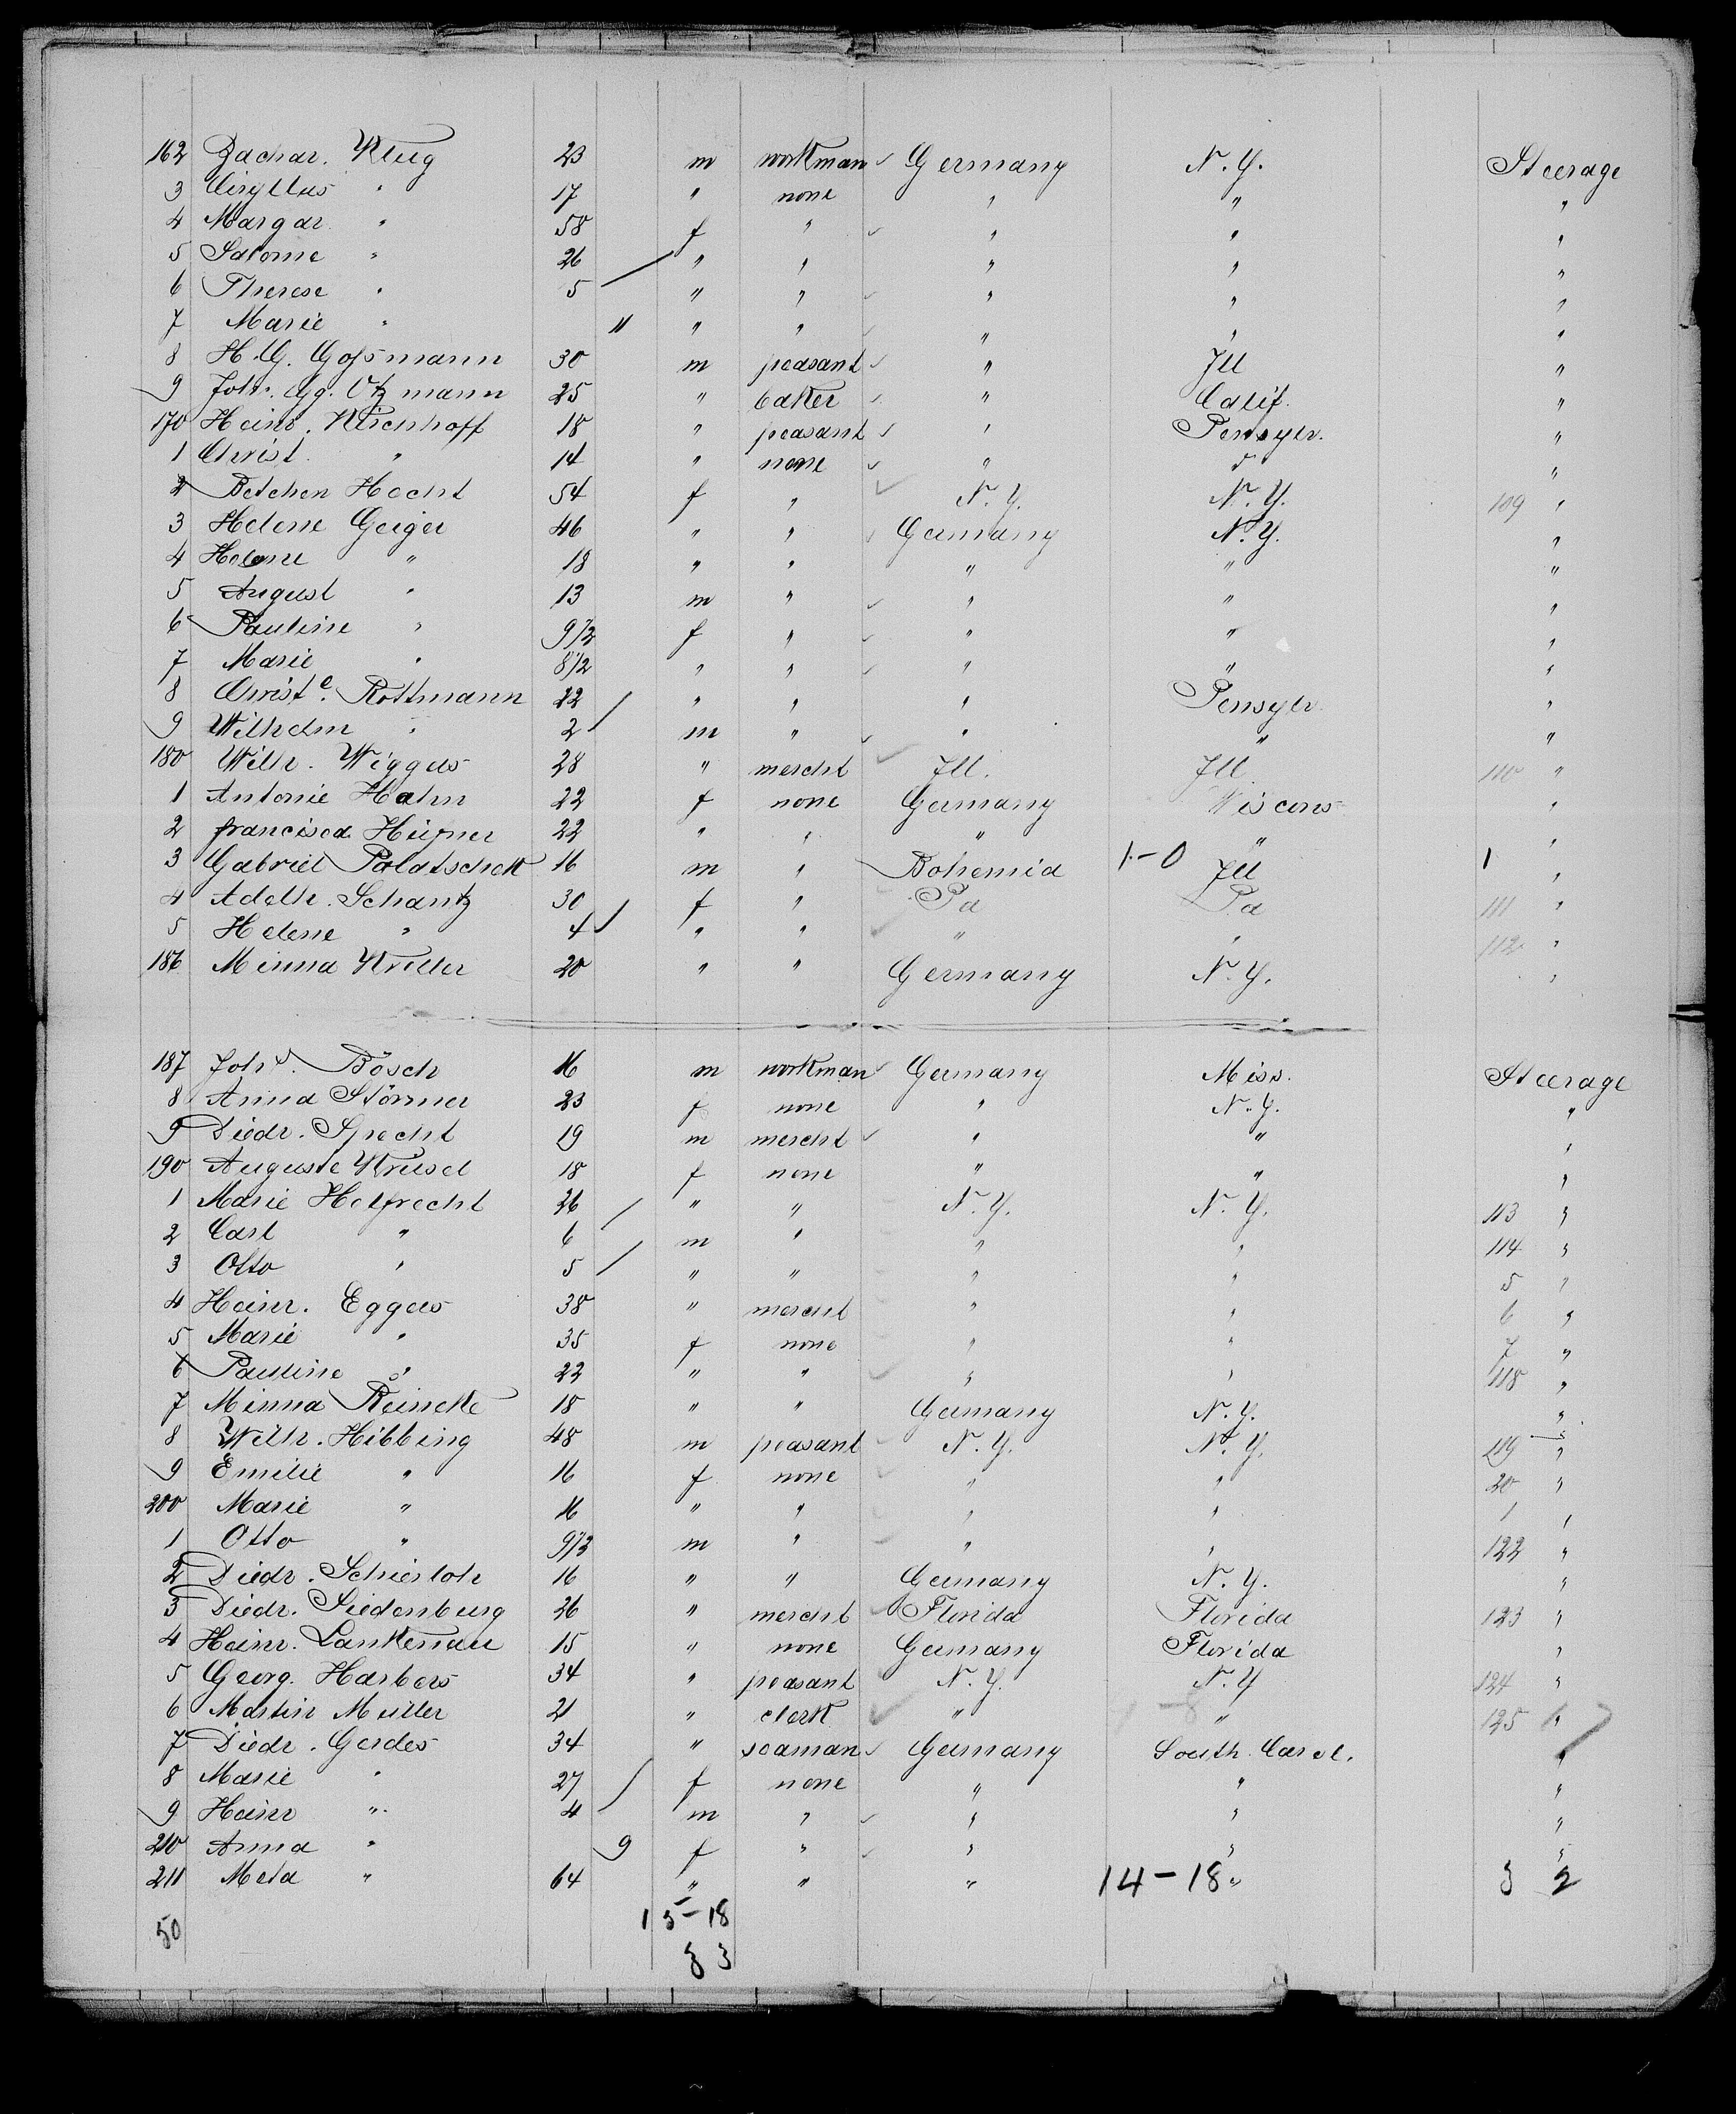 162 Zachar. Klug 23 m workman Germany N.Y. Steerage
3 Ciryllus " 17 " none " " "
4 Margar. " 58 f " " " "
5 Salome " 26 " " " " "
6 Therese " 5 " " " " "
7 Marie " 11 " " " " "
8 H. G. Goßmann 30 m peasant " Ill "
9 Joh. Gg. Utzmann 25 " baker " Calif. "
170 Heinr. Kirchhoff 18 " peasant " Pensylv. "
1 Christ. " 14 " none " " "
2 Betchen Hecht 54 f " N.Y. N.Y. 109 "
3 Helene Geiger 46 " " Germany N.Y. "
4 Helene " 18 " " " " "
5 August " 13 m " " " "
6 Pauline " 9 1/2 f " " " "
7 Marie " 8 1/2 " " " " "
8 Christe. Rottmann 22 " " " Pensylv. "
9 Wilhelm " 2 m " " " "
180 Wilh. Wiggers 28 " mercht Ill. Ill. 110 "
1 Antonie Hahn 22 f none Germany Wiscons "
2 Francisca Hüfner 22 " " " " "
3 Gabriel Palatschek 16 m " Bohemia 1-0 Ill 1 "
4 Adelh. Schantz 30 f " Pa Pa 111 "
5 Helene " 4 " " " " 112 "
186 Minna Kriller 20 " " Germany N.Y. "
187 Joh. Bösch 16 m workman Germany Miss. Steerage
8 Anna Störmer 23 f none " N.Y. "
9 Diedr. Specht 19 m mercht " " "
190 Auguste Krusel 18 f none " " "
1 Marie Helfrecht 26 " " N.Y. N.Y. 113 "
2 Carl " 6 m " " " 114 "
3 Otto " 5 " " " " 5 "
4 Heinr. Eggers 38 " mercht " " 6 "
5 Marie " 35 f none " " 7 "
6 Pauline " 22 " " " " 118 "
7 Minna Reineke 18 " " Germany N.Y. "
8 Wilh. Hibbing 48 m peasant N.Y. N.Y. 119 "
9 Emilie " 16 f none " " 20 "
200 Marie " 16 " " " " 1 "
1 Otto " 9 1/2 m " " " 122 "
2 Diedr. Schierloh 16 " " Germany N.Y. "
3 Diedr. Siedenburg 26 " mercht Florida Florida 123 "
4 Heinr. Lankenau 15 " none Germany Florida "
5 Georg. Harbers 34 " peasant N.Y. N.Y 124 "
6 Martin Müller 21 " clerk " " 125 "
7 Diedr. Gerdes 34 " seaman Germany South. Carol. "
8 Marie " 27 f none " " "
9 Heinr " 4 m " " " "
210 Anna " 9 f " " " "
211 Meta " 64 " " " 14-18 " 3 2
50 15-18
33